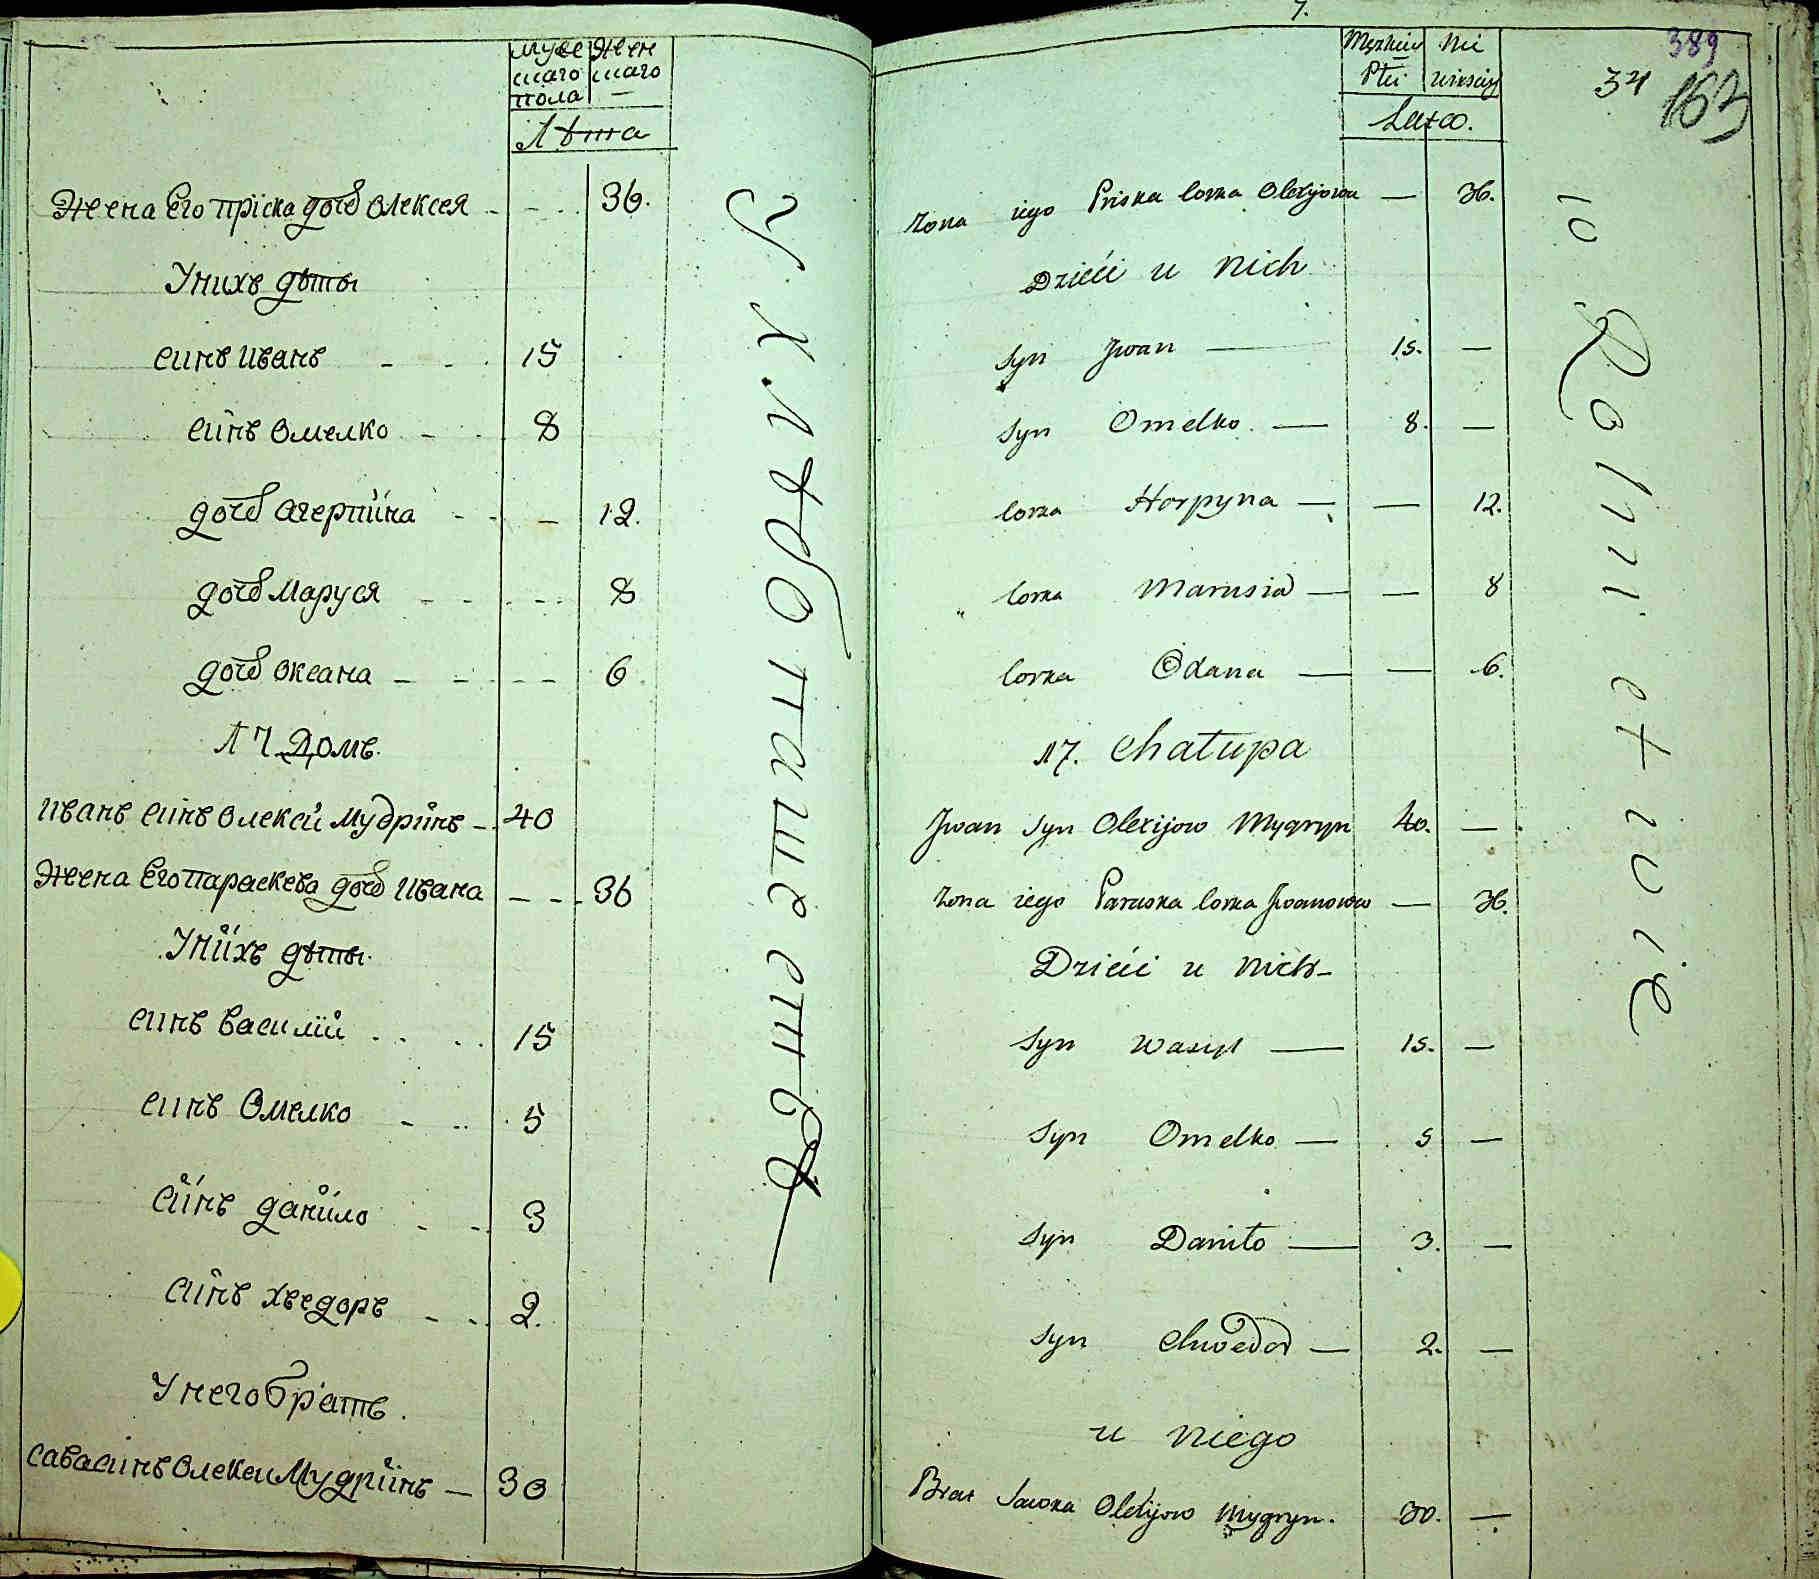 Муже Жен
скаго скаго
пола —
Лѣта
Жена Его Пріска дочь Олексея - - - 36.
У нихъ дѣты
синъ Иванъ - - - 15
синъ Омелко - - 8
дочь Агерпина - - - 12.
дочь Маруся - - - - 8
дочь Оксана - - - - 6
17 Домъ.
Иванъ синъ Олексѣй Мудринъ - 40
Жена Его Параскева дочь Ивана - - - 36
У нихъ дѣты.
синъ Василій . . . 15
синъ Омелко - - 5
синъ Данило - - 3
синъ Хведоръ - - 2.
У него братъ.
Сава синъ Олексеи Мудринъ — 30
У Хлѣбопашествѣ
7.
389
34
163
Męzkiey Nie
Płci wieściey
Lata.
Żona iego Priska corka Olexijowa — 36.
Dzieci u Nich
Syn Jwan — 15. —
Syn Omelko. — 8. —
Corka Horpyna — — 12.
Corka Marusia — — 8
Corka Oxana — — 6.
17. Chałupa
Jwan Syn Olexijow Mygryn 40. —
Żona iego Paraska Corka Jwanowa — 36.
Dzieci u Nich
Syn Wasyl — 15. —
Syn Omelko — 5 —
Syn Daniło — 3. —
Syn Chwedor — 2. —
u Niego
Brat Sawka Olexijow Mygryn. 30. —
10 Rolnictwie